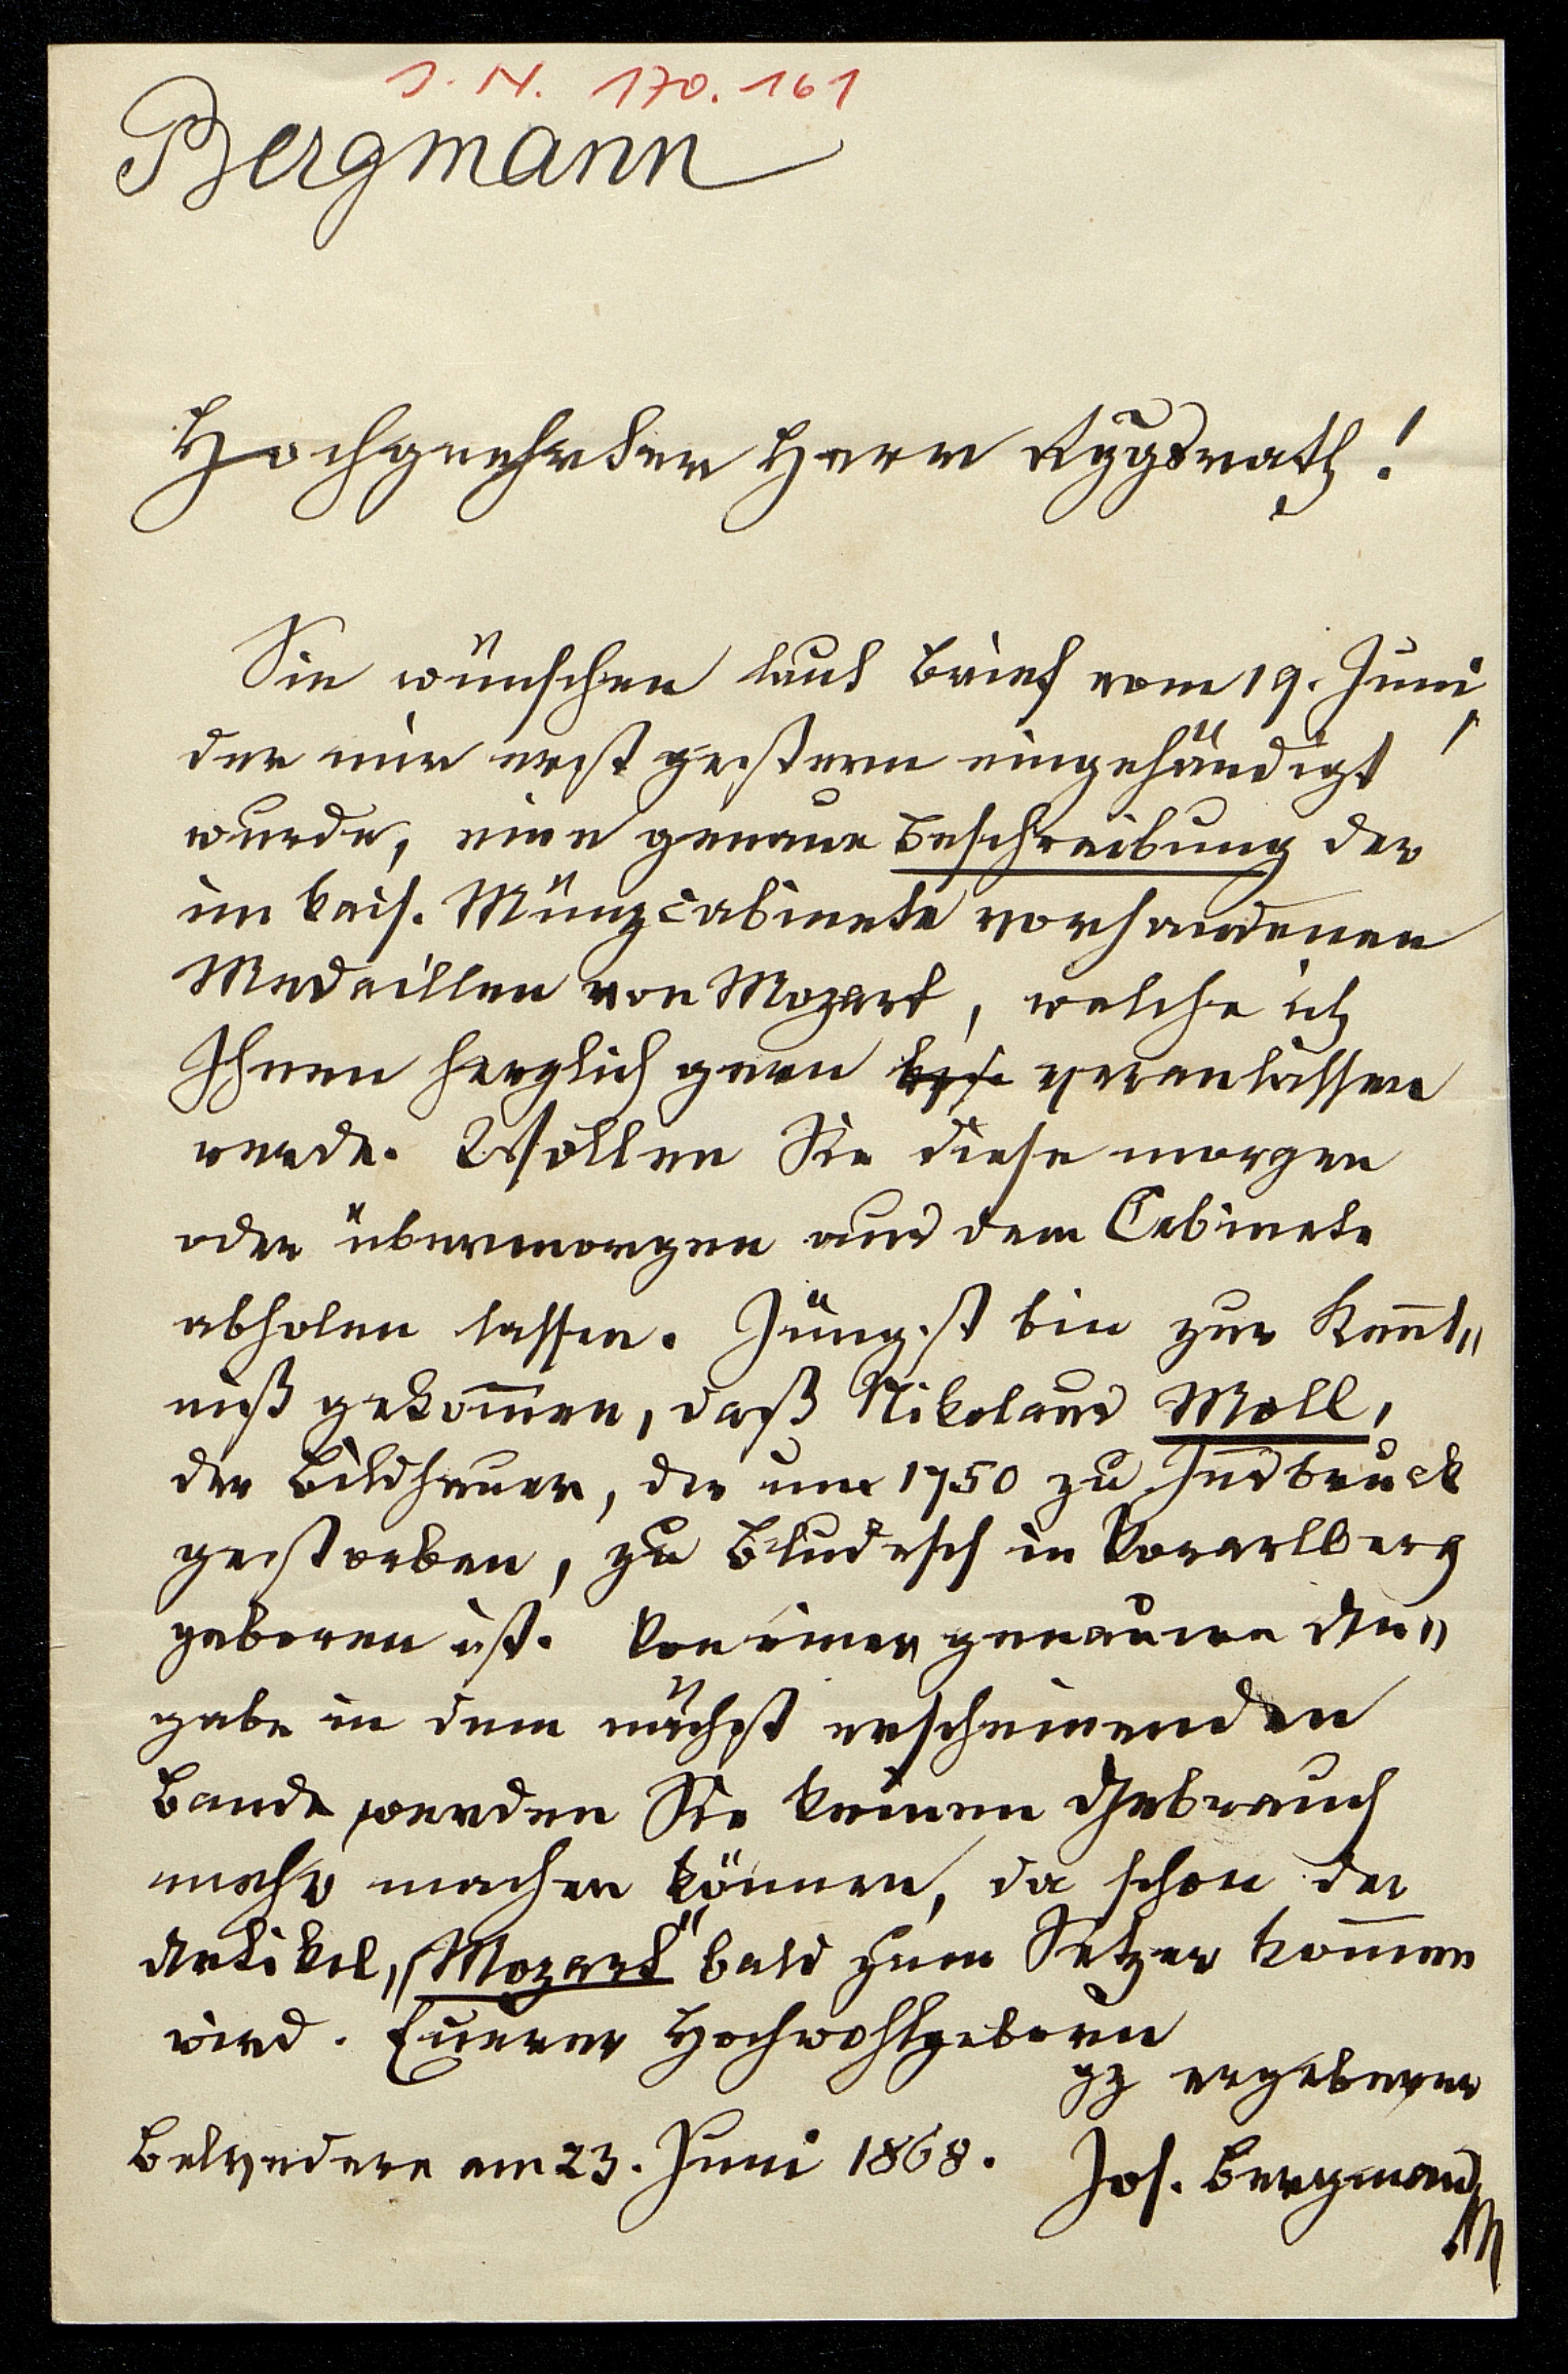 J. N. 170.161
Bergmann
Hochgeehrter Herr Rggsrath!
Sie wünschen laut Brief vom 19. Juni,
der mir erst gestern eingehändigt
wurde, eine genaue Beschreibung der
im kais. Münzcabinete vorhandenen
Medaillen von Mozart, welche ich
Ihnen herzlich gern veranlassen
werde. Wollen Sie diese morgen
oder übermorgen aus dem Cabinete
abholen lassen. Jüngst bin zur Kennt„
niß gekommen, daß Nikolaus Moll,
der Bildhauer, der um 1750 zu Insbruck
gestorben, zu Bludesch in Vorarlberg
geboren ist. Von einer genauen An„
gabe in dem nächst erscheinenden
Bande werden Sie keinen Gebrauch
mehr machen können, da schon der
Artikel „Mozart“ bald zum Setzer kommen
wird. Euerer Hochwohlgeboren
gz ergebener
Belvedere am 23. Juni 1868. Jos. Bergmann